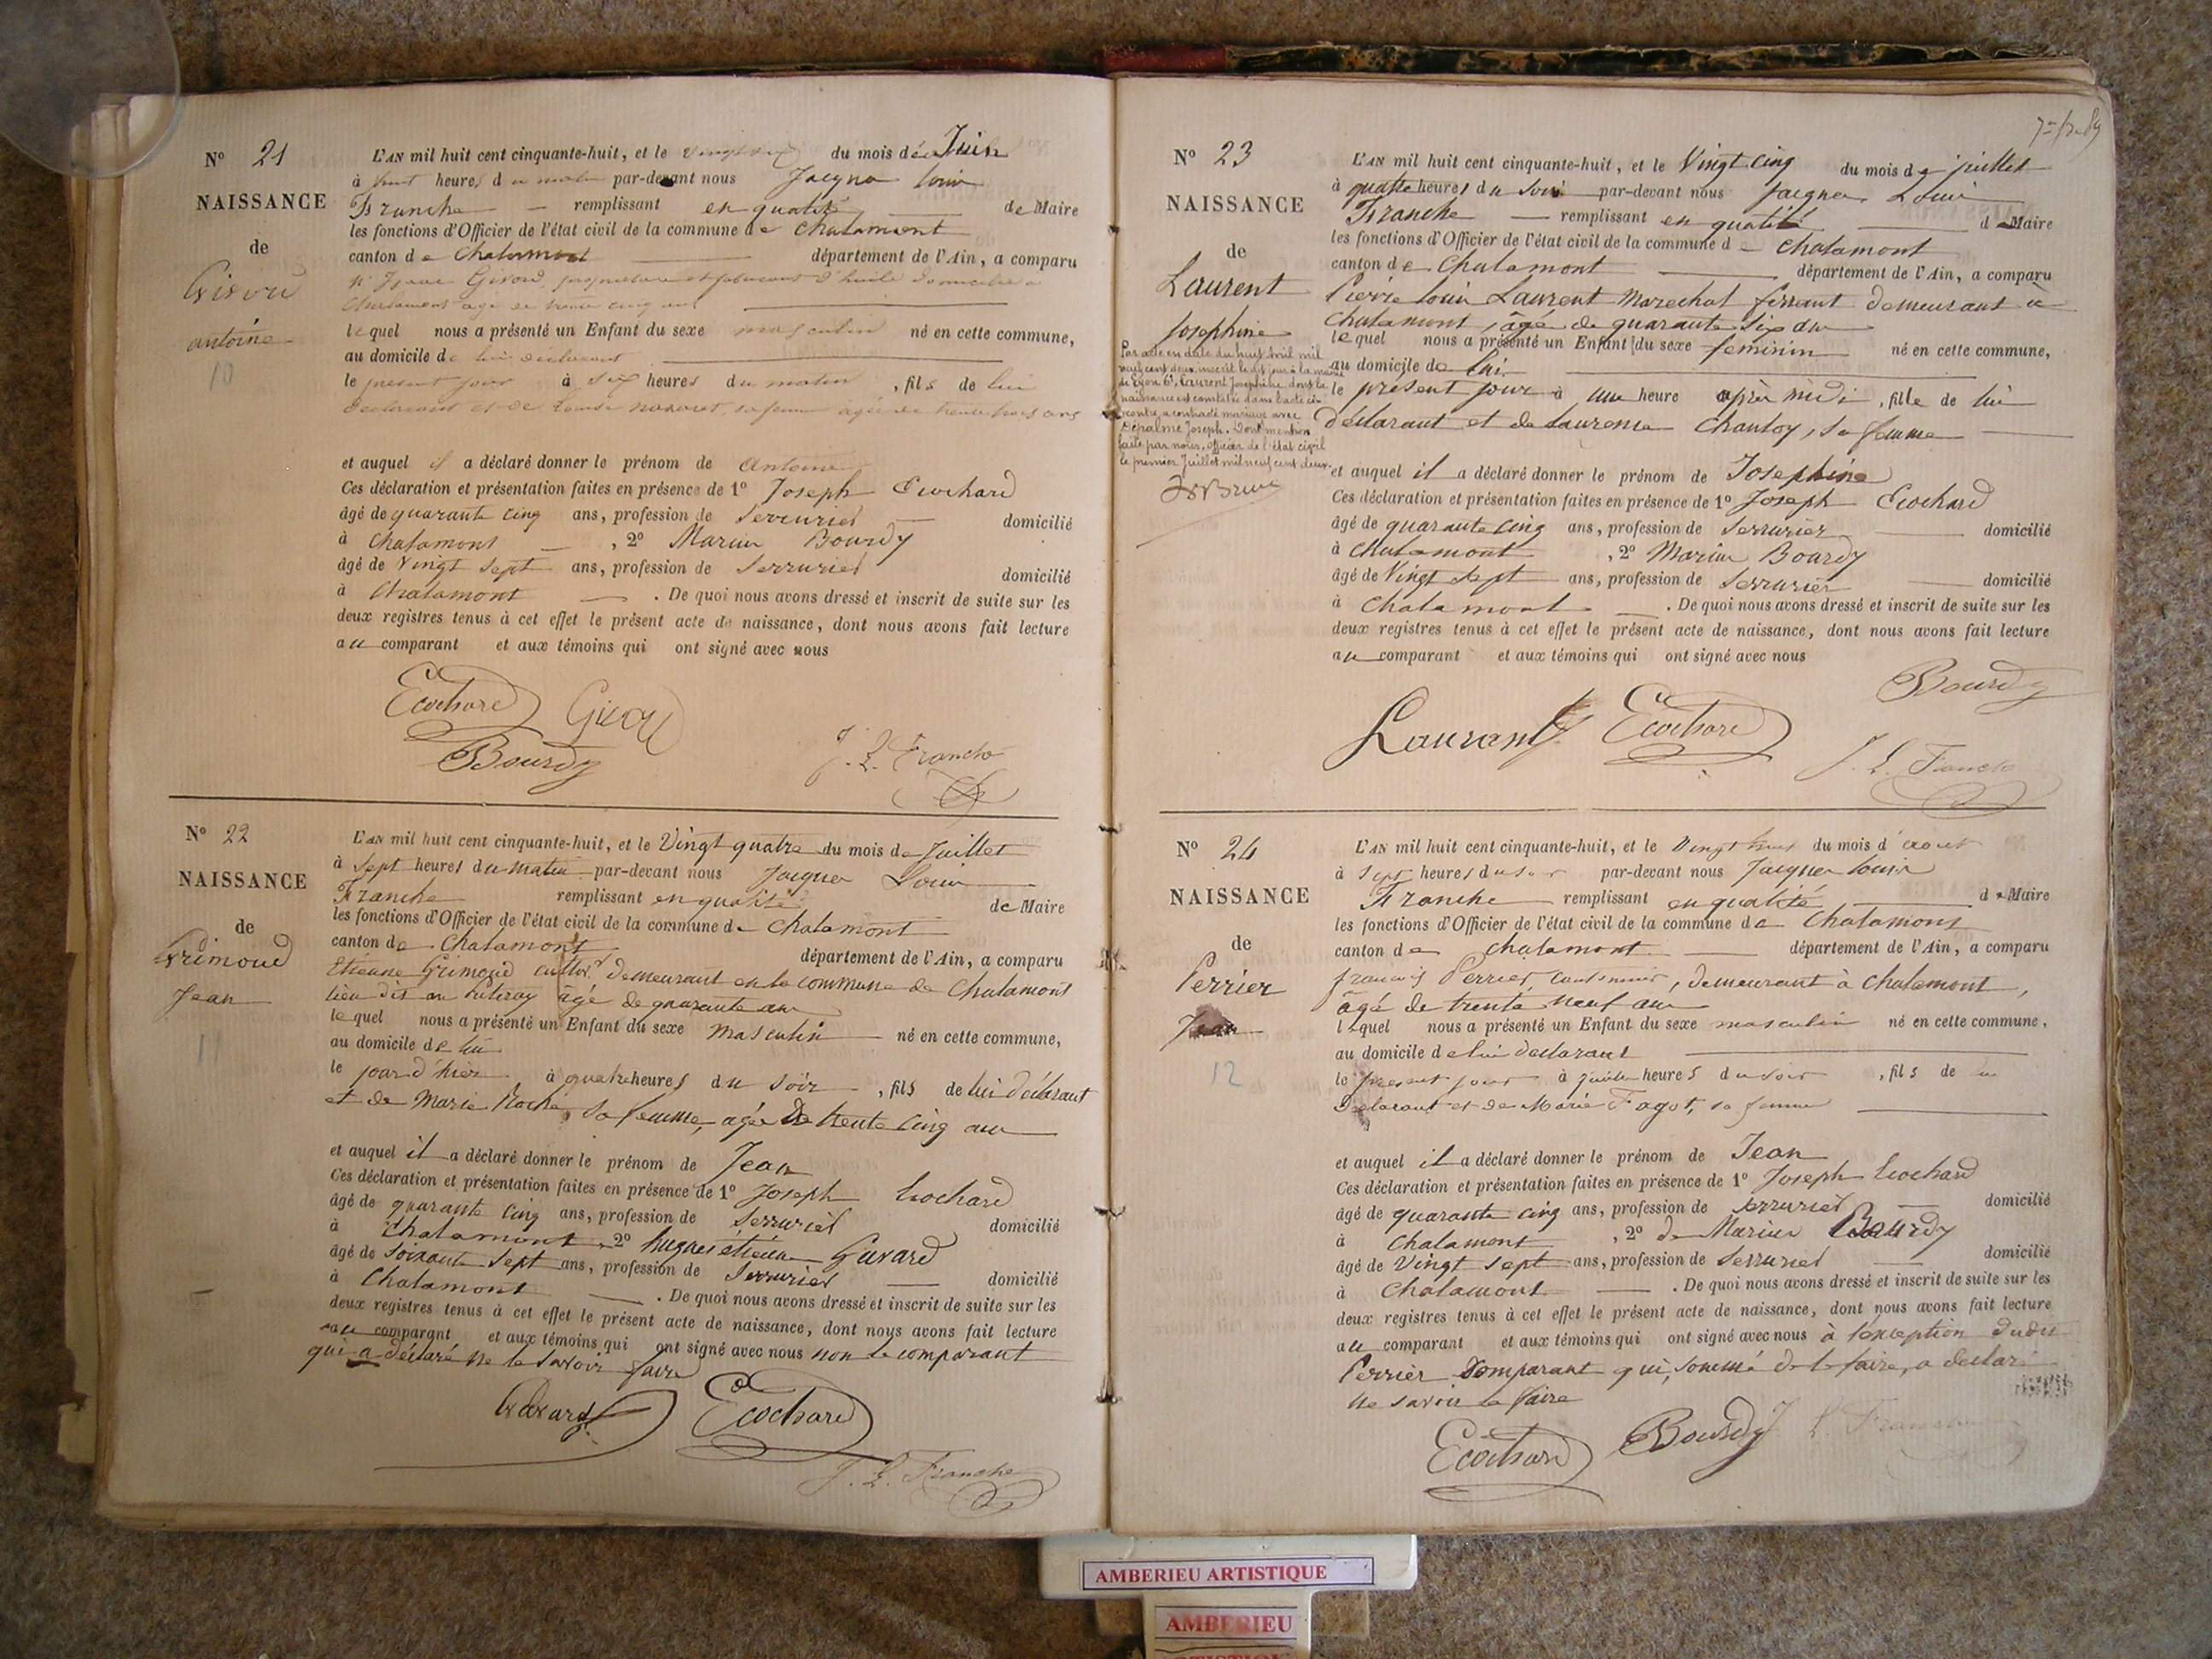 N° 21
NAISSANCE
de
Givord
antoine
10
L'AN mil huit cent cinquante-huit, et le vingt six du mois de Juin
à huit heures du matin par-devant nous Jacques Louis
Franche remplissant en qualité de Maire
les fonctions d'Officier de l'état civil de la commune de Chalamont
canton de Chalamont département de l'Ain, a comparu
Givord, propriétaire et fabricant d'huile domicilié à
Chalamont agé de trente cinq ans
lequel nous a présenté un Enfant du sexe masculin né en cette commune,
au domicile de lui déclarant
le présent jour à six heures du matin, fils de lui
déclarant et de Louise sa femme agée de trente trois ans
et auquel il a déclaré donner le prénom de Antoine
Ces déclaration et présentation faites en présence de 1° Joseph Ecochard
âgé de quarante cinq ans, profession de Serrurier domicilié
à Chalamont, 2° Marius Bourdy
âgé de Vingt Sept ans, profession de Serrurier domicilié
à Chalamont. De quoi nous avons dressé et inscrit de suite sur les
deux registres tenus à cet effet le présent acte de naissance, dont nous avons fait lecture
au comparant et aux témoins qui ont signé avec nous
Ecochard Givord
Bourdy J. L. Franche
N° 22
NAISSANCE
de
Grimoud
Jean
11
L'AN mil huit cent cinquante-huit, et le Vingt quatre du mois de Juillet
à Sept heures du matin par-devant nous Jacques Louis
Franche remplissant en qualité de Maire
les fonctions d'Officier de l'état civil de la commune de Chalamont
canton de Chalamont département de l'Ain, a comparu
Etienne Grimoud cultivr demeurant en la commune de Chalamont
lieu dit au âgé de quarante ans
lequel nous a présenté un Enfant du sexe masculin né en cette commune,
au domicile de lui
le jour d'hier à quatre heures du soir, fils de lui déclarant
et de Marie Roche, sa femme, agée de trente cinq ans
et auquel il a déclaré donner le prénom de Jean
Ces déclaration et présentation faites en présence de 1° Joseph Ecochard
âgé de quarante cinq ans, profession de Serrurier domicilié
à Chalamont, 2° hugues étienne Gavard
âgé de Soixante Sept ans, profession de Serrurier domicilié
à Chalamont. De quoi nous avons dressé et inscrit de suite sur les
deux registres tenus à cet effet le présent acte de naissance, dont nous avons fait lecture
au comparant et aux témoins qui ont signé avec nous non le comparant
qui a déclaré ne le savoir faire
Gavard Ecochard
J. L. Franche
N° 23
NAISSANCE
de
Laurent
Josephine
Par acte en date du huit Avril mil
neuf cent deux, inscrit le dit jour à la mairie
de Lyon 6e, Laurent Joséphine dont la
naissance est constatée dans l'acte ci-
contre, a contracté mariage avec
Dépalme Joseph. Dont mention
faite par nous, officier de l'état civil
le premier Juillet mil neuf cent deux.
L'AN mil huit cent cinquante-huit, et le Vingt cinq du mois de juillet
à quatre heures du soir par-devant nous Jacques Louis
Franche remplissant en qualité de Maire
les fonctions d'Officier de l'état civil de la commune de Chalamont
canton de Chalamont département de l'Ain, a comparu
Pierre Louis Laurent Marechal ferrant demeurant à
Chalamont, âgé de quarante six ans
lequel nous a présenté un Enfant du sexe feminin né en cette commune,
au domicile de lui
le present jour à une heure après midi, fille de lui
déclarant et de Laurence Chantoy, sa femme
et auquel il a déclaré donner le prénom de Josephine
Ces déclaration et présentation faites en présence de 1° Joseph Ecochard
âgé de quarante cinq ans, profession de Serrurier domicilié
à Chalamont, 2° Marius Bourdy
âgé de Vingt Sept ans, profession de Serrurier domicilié
à Chalamont. De quoi nous avons dressé et inscrit de suite sur les
deux registres tenus à cet effet le présent acte de naissance, dont nous avons fait lecture
au comparant et aux témoins qui ont signé avec nous
Bourdy
Laurant Ecochard
J. L. Franche
N° 24
NAISSANCE
de
Perrier
Jean
12
L'AN mil huit cent cinquante-huit, et le Vingt du mois d'aout
à sept heures du soir par-devant nous Jacques Louis
Franche remplissant en qualité de Maire
les fonctions d'Officier de l'état civil de la commune de Chalamont
canton de Chalamont département de l'Ain, a comparu
françois Perrier, cantonnier, demeurant à Chalamont,
âgé de trente neuf ans
lequel nous a présenté un Enfant du sexe masculin né en cette commune,
au domicile de lui déclarant
le présent jour à heures du soir, fils de lui
déclarant et de Marie Fagot, sa femme
et auquel il a déclaré donner le prénom de Jean
Ces déclaration et présentation faites en présence de 1° Joseph Ecochard
âgé de quarante cinq ans, profession de serrurier domicilié
à Chalamont, 2° de Marius Bourdy
âgé de Vingt Sept ans, profession de Serrurier domicilié
à Chalamont. De quoi nous avons dressé et inscrit de suite sur les
deux registres tenus à cet effet le présent acte de naissance, dont nous avons fait lecture
au comparant et aux témoins qui ont signé avec nous à l'exception dudit
Perrier Comparant qui, sommé de le faire, a déclaré
ne savoir le faire
Ecochard Bourdy J. L. Franche
AMBERIEU ARTISTIQUE
AMBERIEU
ARTISTIQUE